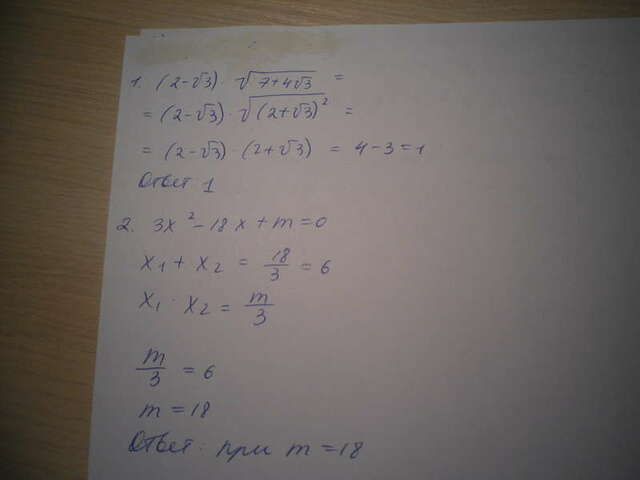 1. (2-√3) · √(7+4√3) =
= (2-√3) · √((2+√3)²) =
= (2-√3) · (2+√3) = 4-3=1
Ответ 1
2. 3x²-18x+m=0
x₁ + x₂ = 18/3 = 6
x₁ · x₂ = m/3
m/3 = 6
m = 18
Ответ: при m=18